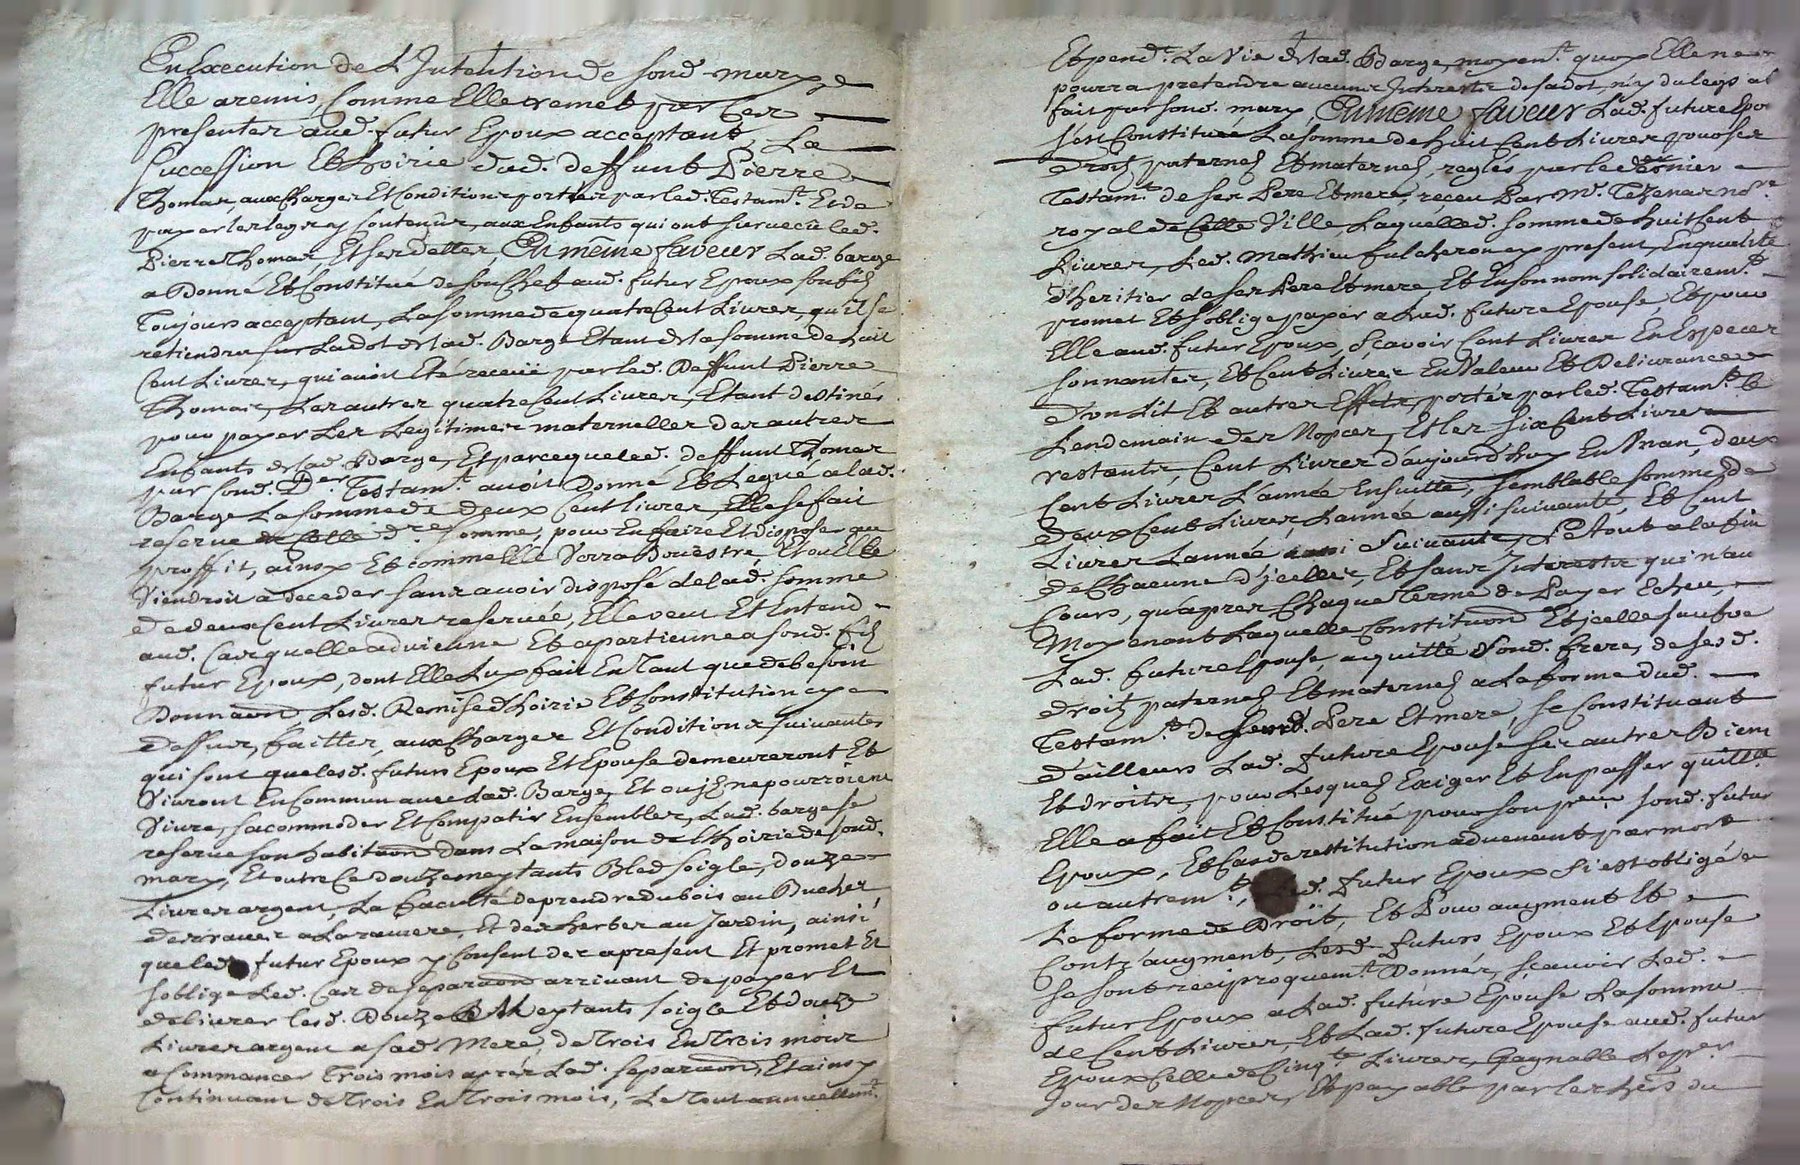 En Execution de L Intention de sond. mary
Elle a remis, Comme Elle remet par Ces
presentes aud. futur Epoux acceptant, La
Succession Et hoirie dud. deffunt Pierre
Thomas, aux Charges Et Conditions portées par led. Testamt. Et de
payer les legs y Contenus, aux Enfants qui ont survecu led.
Pierre Thomas, Et ses dettes, En meme faveur Lad. barge
a Donné Et Constitué de son Chef aud. futur Epoux son fils
Toujours acceptant, La somme de quatre Cent Livres, qu'il se
retiendra sur La dot de lad. Barge Etant de la somme de huit
Cent Livres, qui avoit Eté receüe par led. Deffunt Pierre
Thomas, Les autres quatre Cent Livres, Etant destinés
pour payer Les Legitimes maternelles des autres
Enfants de lad. Barge, Et parce que led. deffunt Thomas
par sond. Der. Testamt. avoit Donné Et Legué a lad.
Barge La somme de deux Cent livres, Elle se fait
reserve de Celle dre somme, pour En faire Et disposer au
proffit, ainsy Et comm'elle Verra Bon estre, Et ou Elle
Viendroit a deceder sans avoir disposé de lad. somme
de deux Cent Livres reservée, Elle veut Et Entend
aud. Cas quelle advienne Et apartienne a sond. fils
futur Epoux, dont Elle Luy fait En Tant que de besoin
Donnaon, Lesd. Remise d'hoirie Et Constitution cy
dessus, faittes, aux Charges Et Conditions suivantes
qui sont que lesd. futurs Epoux Et Epouse demeureront Et
Vivront En Commun avec Lad. Barge, Et ou jls ne pourroient
Vivre, sacommoder Et Compatir Ensembles, Lad. barge se
reserve son habitaon dans La maison de l'hoirie de sond.
mary, Et outre Ce douze meytants Bled soigle, douze
Livres argent, La faculté de prendre du bois au Bucher
des raves a La raviere, Et des herbes au Jardin, ainsi
que led. futur Epoux y Consent des apresent Et promet Et
soblige Led. Cas de separaon arrivant de payer Et
delivrer lesd. Douze Meytants soigle Et douze
Livres argent a sad. Mere, de Trois En Trois mois
a Commancer Trois mois après Lad. separaon, Et ainsy
Continuant de Trois En Trois mois, Le Tout annuellemt.
Et pendt. La Vie de lad. Barge, moyent. quoy Elle ne
pourra pretendre aucuns Interests de sa dot, ny du legs a
fait par sond. mary, En meme faveur Lad. future
sest Constituée La somme de huit Cent Livres pour ses
Droits paternels Et maternels, reglés par le dernier
Testamt. de ses Pere Et mere, receu Par Me. Tezenas nore.
royal de Cette Ville Laquelle d. somme de huit Cent
Livres, Led. Mathieu fulcheron cy present, En qualité
d'heritier de ses Pere Et mere Et En son nom solidairemt.
promet Et soblige payer a Lad. future Epouse, Et pour
Elle aud. futur Epoux, Sçavoir Cent Livres En Especes
sonnantes, Et Cent Livres En Valeur Et Delivrance
d'un Lit Et autres Effets, portés par led. Testamt. Le
Lendemain des Nopces, Et les six Cent Livres
restants, Cent Livres d'aujourd'huy En Vn an, deux
Cent Livres L'année Ensuitte, semblable somme de
deux Cent Livres Lannée aussi suivante, Et Cent
Livres Lannée Suivante, Le tout a la fin
de Chacune d'jcelles, Et sans Interests qui n'au
Cours, qu'apres Chaque Terme de Payer Echeu,
Moyenant Laquelle Constituon Et jcelle sauve
Lad. future Epouse, a quitté sond. frere, de sesd.
droits paternels Et maternels a La forme dud.
Testamt. de Pere Et mere, se Constituant
d'ailleurs Lad. future Epouse ses autres Biens
Et droits, pour Lesquels Exiger Et En passer quittce
Elle a fait Et Constitué pour son preur sond. futur
Epoux, Et Cas de restitution advenant par mort
ou autremt., Led. futur Epoux si est obligé
La forme de Droit, Et Pour augment Et
Contr'augment, Lesd. futurs Epoux Et Epouse
se sont reciproquemt. Donnés, Sçavoir Led.
futur Epoux a Lad. future Epouse La somme
de Cent Livres, Et Lad. future Epouse aud. futur
Epoux Celle de Cinqte Livres, Gagnable Le per.
Jour des Nopces, Et payable par les hers du